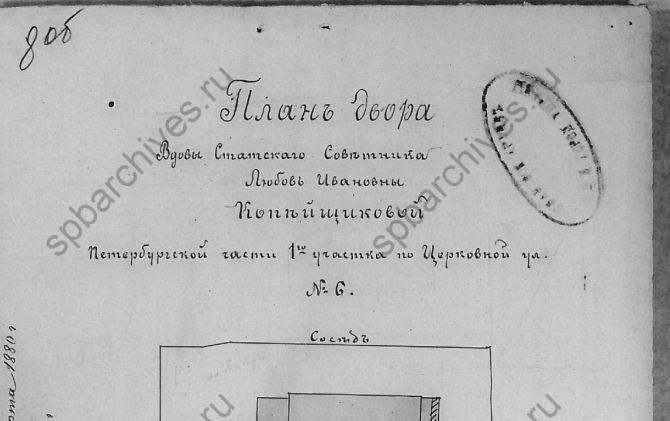 806
Планъ двора
Вдовы Статскаго Совѣтника
Любовь Ивановны
Копѣйщиковой
Петербургской части 1го участка по Церковной ул.
№ 6.
Сосѣдъ
1880 г
spbarchives.ru
spbarchives.ru
spbarchives.ru
spbarchives.ru